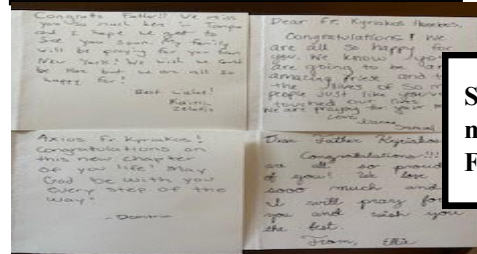 Congrats Father!! We miss
you so much here in Tampa
and I hope we get to
see you soon. My family
will be praying for you from
New York! We wish we could
be there but we are all so
happy for!
Best wishes!
Dear Fr. Kyriakos
Congratulations! We
are all so happy for
you. We know you
are going to be
amazing and
the lives of so
people just like you
touched our
We are praying for your
Love,
Axios Fr. Kyriakos!
Congratulations on
this new chapter
of you life! May
God be with you
every step of the
way!
Dear Father Kyriakos
Congratulations!!!
are all so proud
of you! We love
sooo much and
I will pray for
you and wish you
the best.
From, Ellie
S
n
F